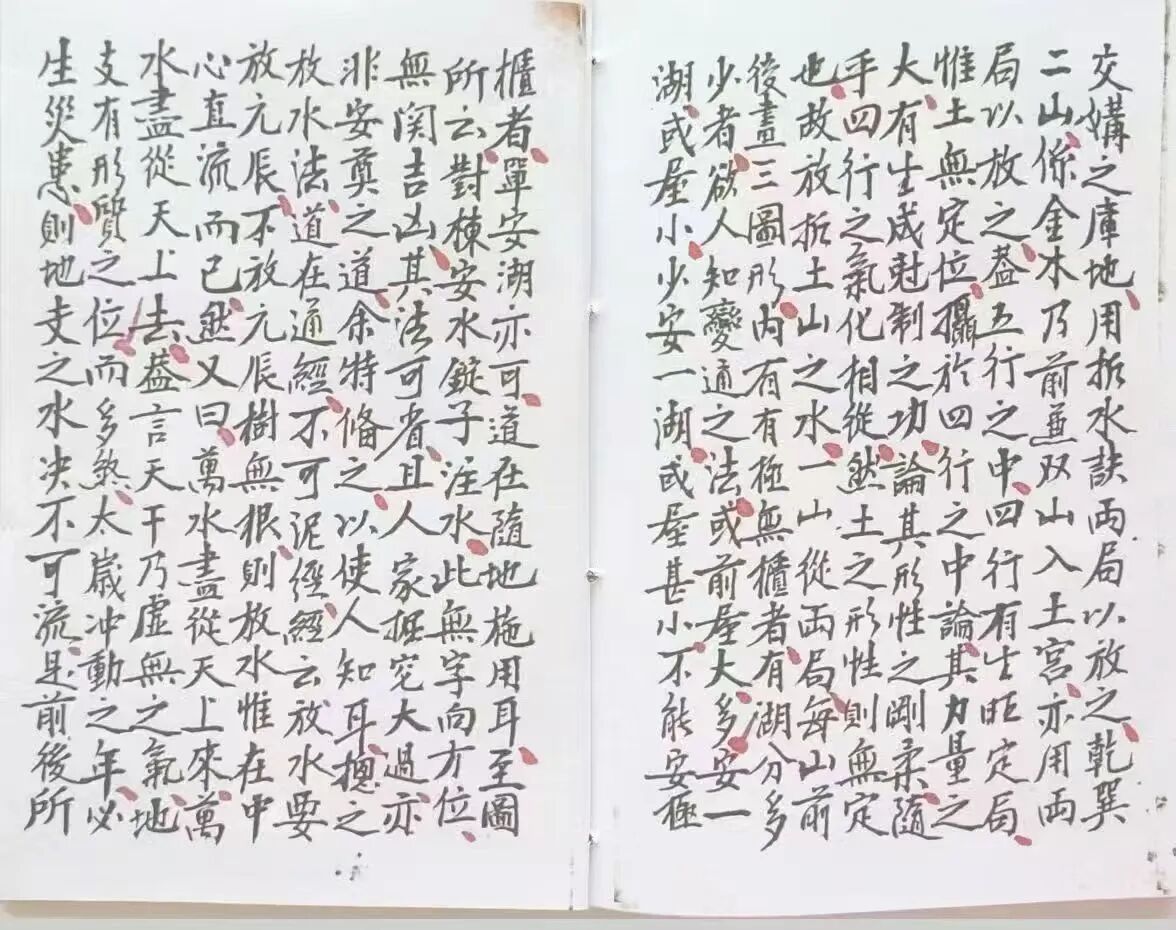 交媾之庫地用拆水訣兩局以放之乾巽
二山係金木乃前並双山入土宮亦用兩
局以放之蓋五行之中四行有生旺定局
惟土無定位攝於四行之中論其力量之
大有生成尅制之功論其形性之剛柔隨
手四行之氣化相從然土之形性則無定
也故放拆土山之水一山從兩局每山前
後畫三圖形內有有極無櫃者有湖分多
少者欲人知變通之法或前屋大多安一
湖或屋小少安一湖或屋甚小不能安極
櫃者單安湖亦可道在隨地施用耳至圖
所云對棟安水錠子注水此無字向方位
無関吉凶其法可省且人家掘究大過亦
非安奠之道余特條之以使人知耳摠之
放水法道在通經不可泥經經云放水要
放元辰不放元辰樹無根則放水惟在中
心直流而已然又曰萬水盡從天上來萬
水盡從天上去蓋言天干乃虛無之氣地
支有形質之位而多煞太歲冲動之年必
生災患則地支之水決不可流是前後所